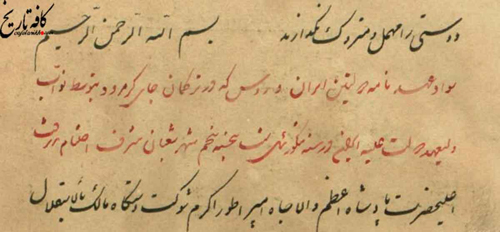 کافه تاریخ
دوستی را مهمل و متروک نگذارند بسم الله الرحمن الرحیم
سواد عهد نامه دولتین ایران و روس که در ترکمان چای گرمرود بتوسط نواب
ولیعهد دولت علیه در سنه پنجم شهر شعبان شرف اختتام پذیرفت
اعلیحضرت پادشاه اعظم والاجاه امپراطور اکرم شوکت دستگاه مالک بالاستقلال